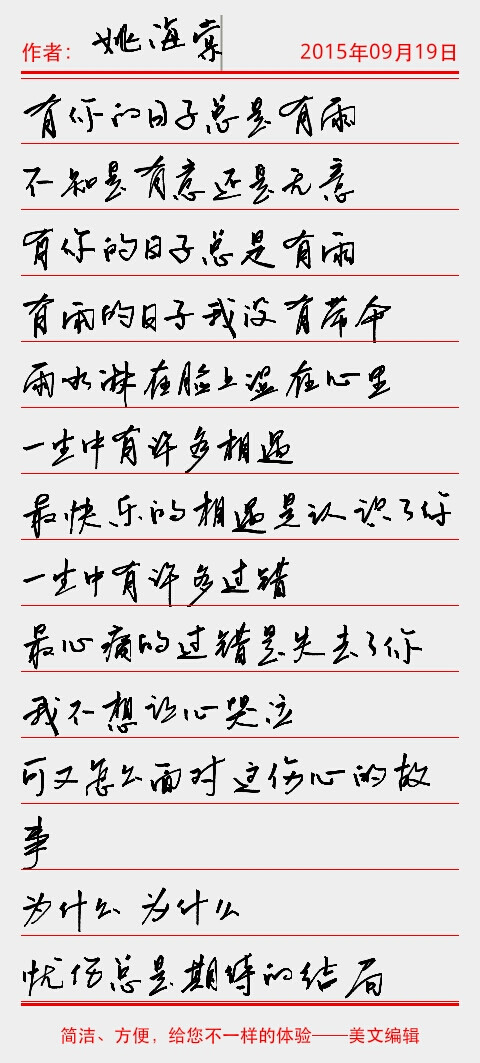 作者： 姚海棠 2015年09月19日
有你的日子总是有雨
不知是有意还是无意
有你的日子总是有雨
有雨的日子我没有带伞
雨水淋在脸上湿在心里
一生中有许多相遇
最快乐的相遇是认识了你
一生中有许多过错
最心痛的过错是失去了你
我不想让心哭泣
可又怎么面对这伤心的故
事
为什么 为什么
忧伤总是期待的结局
简洁、方便，给您不一样的体验——美文编辑